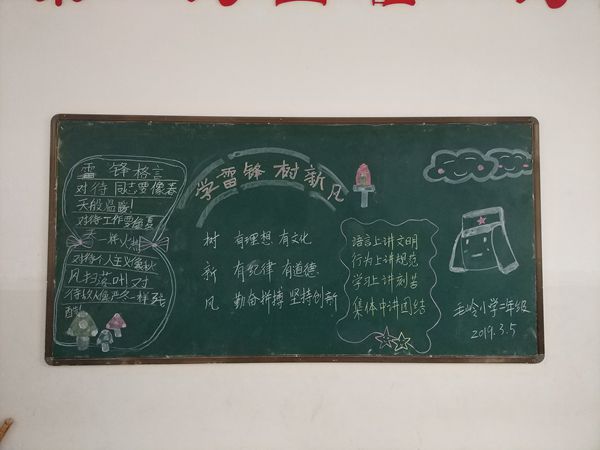 学雷锋 树新风
雷锋格言
对待同志要像春
天般温暖!
对待工作要像夏
天一样火热
对待个人主义像秋
风扫落叶 对
待敌人像严冬一样残
酷
树 有理想 有文化
新 有纪律 有道德
风 勤奋拼搏 坚持创新
语言上讲文明
行为上讲规范
学习上讲刻苦
集体中讲团结
毛岭小学二年级
2019.3.5